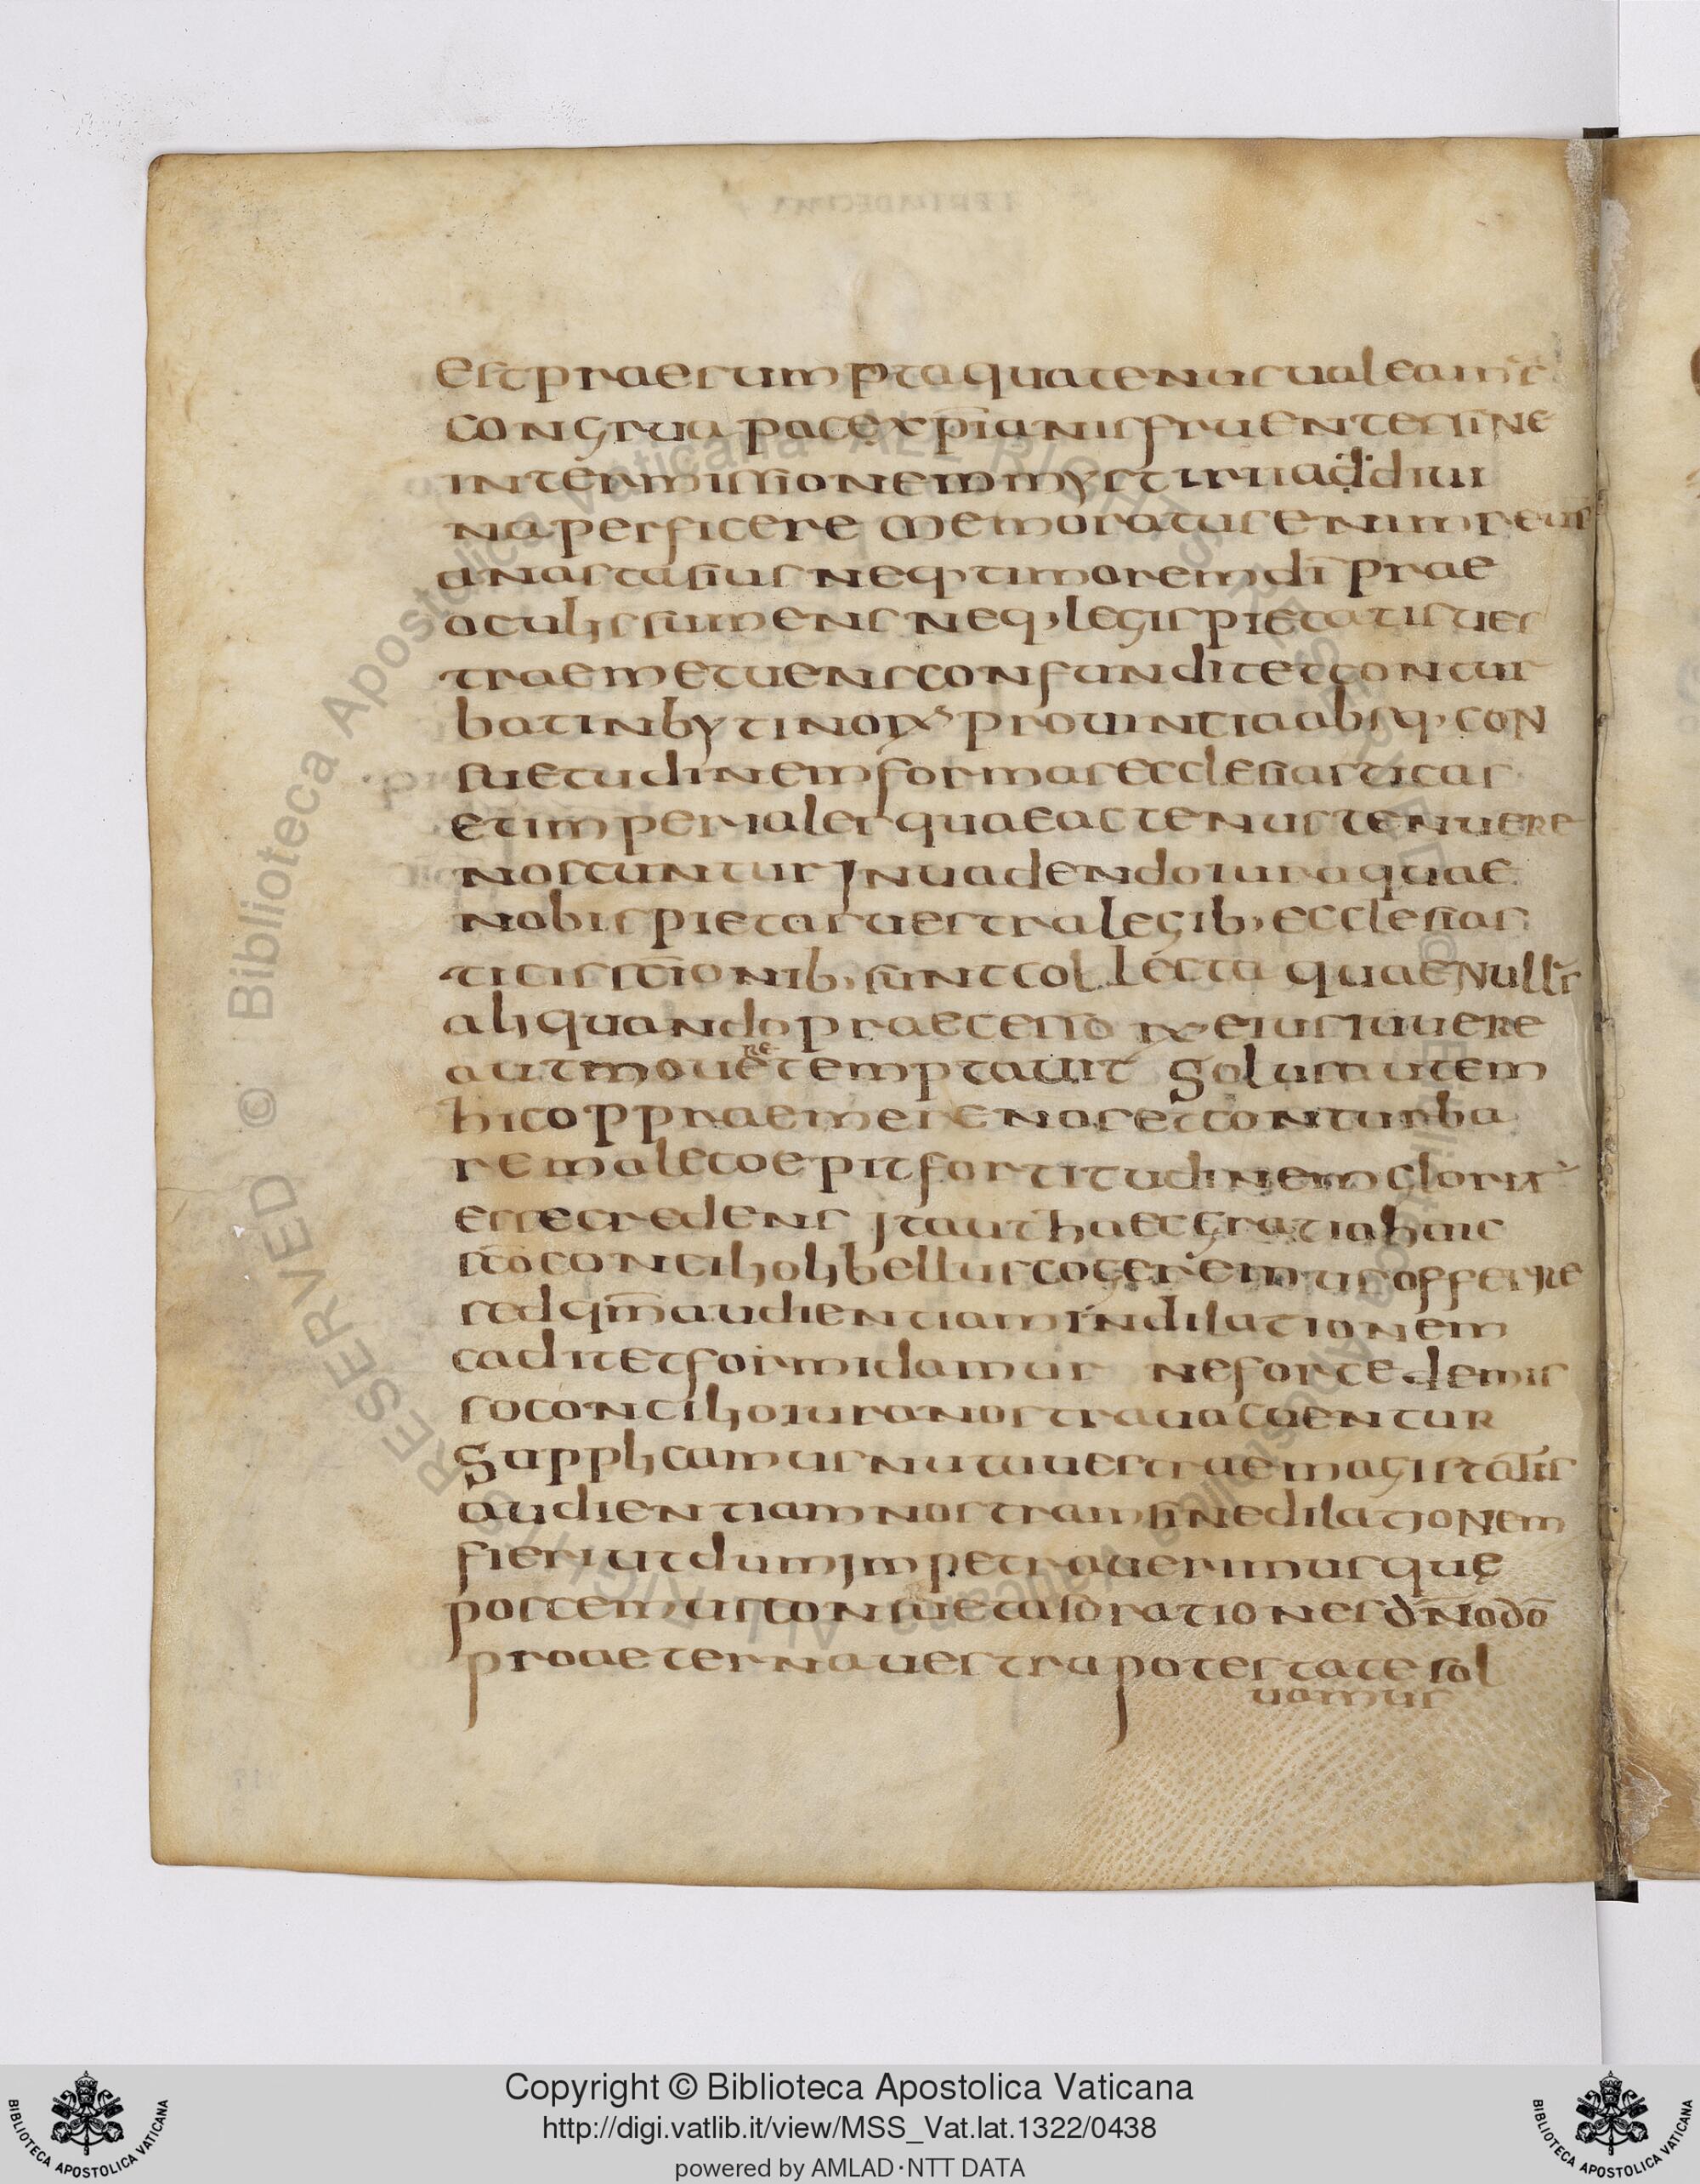 est praesumpta quatenus ualeamus
congrua pace xp̄ianis fruentes sine
intermissionem mystiria ad diui
na perficere Memoratus enim reus
anastasius neq; timorem dī prae
oculis sumens neq; legis pietatis ues
trae metuens confundit et contur
bat in bytinorx s prouintia absq; con
suetudinem formas ecclesiasticas
et imperiales quae actenus tenuere
noscuntur Inuadendo iura quae
nobis pietas uestra legib; ecclesias
ticis sc̄ionib; sunt collecta quae nullus
aliquando praecesso rx eius iuuere
aut mouere temptauit Solum autem
hic oppraemere nos et conturba
re male coepit fortitudinem
esse credens Ita ut haec gratia huic
sc̄o concilio libellus cogeremus offerre
sed qm̄ audientiam in dilationem
cadit et formidamus ne forte demis
so concilio iura nostra uacuentur
Supplicamus nutu uestrae magistatis
audientiam nostram sine dilationem
fieri ut dum Impetrauerimus quę
postemus consuetas orationes dn̄o dō
pro aeterna uestra potestate sol
uamus
Copyright © Biblioteca Apostolica Vaticana
http://digi.vatlib.it/view/MSS_Vat.lat.1322/0438
powered by AMLAD·NTT DATA
BIBLIOTECA APOSTOLICA VATICANA
BIBLIOTECA APOSTOLICA VATICANA